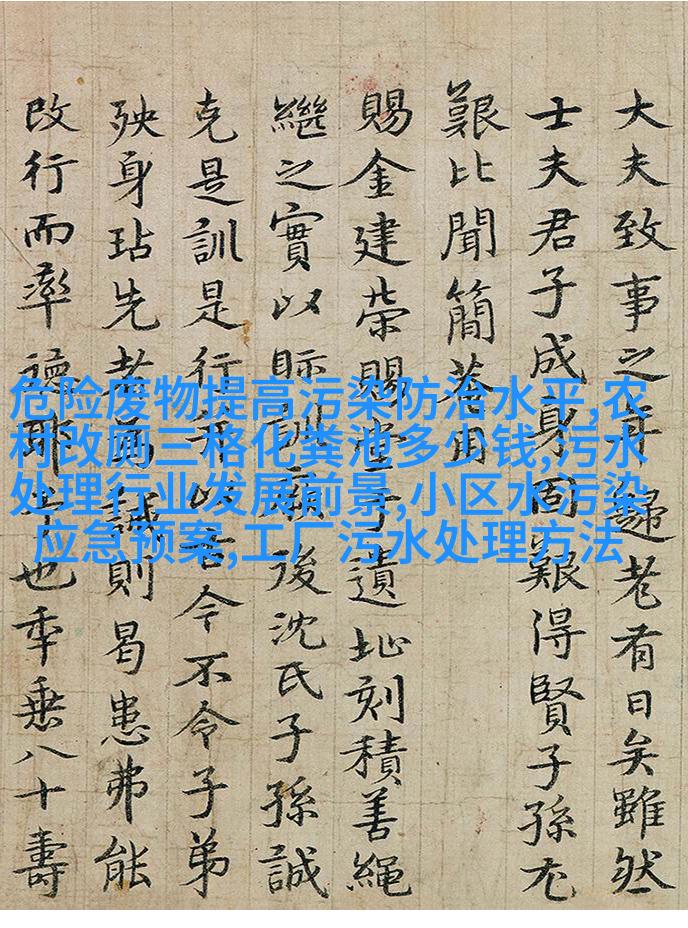 大夫致事之年歸老有日矣雖然
士夫君子成身固艱得賢子孫尤
艱比聞簡菴用
賜金建榮賜堂于遺址刻積善繩
繼之實以眎訓厥後沈氏子孫誠
克是訓是行以告令不令子弟
殃身玷先者為誡則曷患弗能
改行而率德耶也年垂八十壽
危险废物提高污染防治水平,农
村改厕三格化粪池多少钱,污水
处理行业发展前景,小区水污染
应急预案,工厂污水处理方法